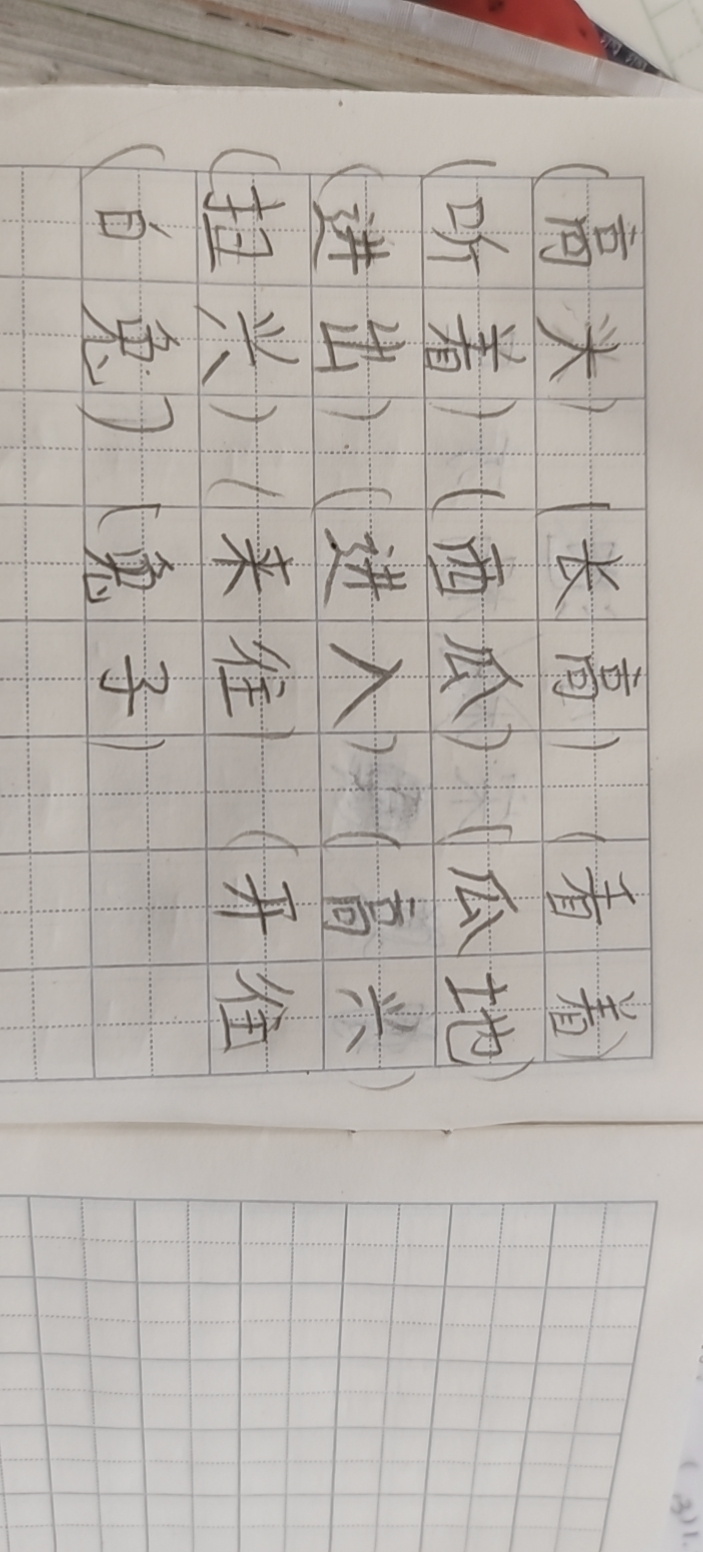 (高) (长高) (看着)
(听着) (西瓜) (瓜地)
(进出) (进入) (高兴)
(扭兴) (来往) (开往)
(白兔) (兔子)